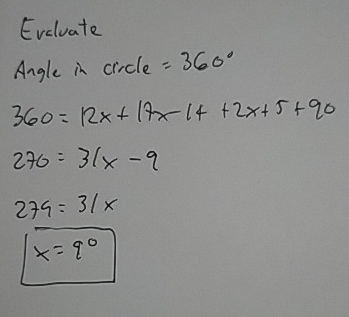 Evaluate
Angle in circle = 360°
360 = 12x + 17x - 14 + 2x + 5 + 90
270 = 31x - 9
279 = 31x
x = 9°